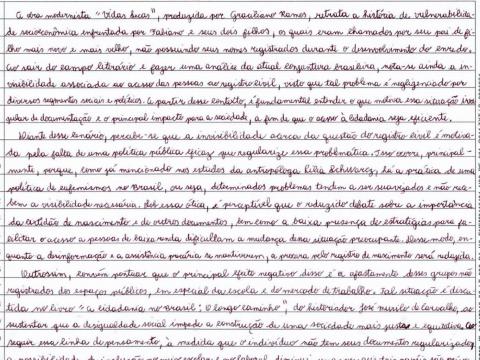 A obra modernista "Vidas Secas", produzida por Graciliano Ramos, retrata a história de vulnerabilida-
de socioeconômica enfrentada por Fabiano e seus dois filhos, os quais eram chamados por seu pai de fi-
lho mais novo e mais velho, não possuindo seus nomes registrados durante o desenvolvimento do enredo.
Ao sair do campo literário e fazer uma análise da atual conjuntura brasileira, nota-se ainda a in-
visibilidade associada ao acesso das pessoas ao registro civil, visto que tal problema é negligenciado por
diversos segmentos sociais e políticos. A partir desse contexto, é fundamental entender o que motiva essa situação
de documentação e o principal impacto para a sociedade, a fim de que o acesso à cidadania seja eficiente.
Diante desse cenário, percebe-se que a invisibilidade acerca da questão do registro civil é motiva-
da pela falta de uma política pública eficaz que regularize essa problemática. Isso ocorre, principal-
mente, porque, como já mencionado nos estudos da antropóloga Lilia Schwarcz, há a prática de uma
política de eufemismos no Brasil, ou seja, determinados problemas tendem a ser suavizados e não rece-
bem a visibilidade necessária. Sob essa ótica, é perceptível que o reduzido debate sobre a importância
da certidão de nascimento e de outros documentos, bem como a baixa presença de estratégias para fa-
cilitar o acesso a pessoas de baixa renda dificultam a mudança dessa situação preocupante. Desse modo, en-
quanto a desinformação e a assistência precária se mantiverem, a procura pelo registro de nascimento será reduzida.
Outrossim, convém pontuar que o principal efeito negativo disso é o afastamento desses grupos não
registrados dos espaços públicos, em especial da escola e do mercado de trabalho. Tal situação é discu-
tida no livro "A cidadania no Brasil: O longo caminho", do historiador José Murilo de Carvalho, ao
sustentar que a desigualdade social impede a construção de uma sociedade mais justa e equitativa. Ao
seguir essa linha de pensamento, à medida que o indivíduo não tem seus documentos regularizados,
a possibilidade de inclusão